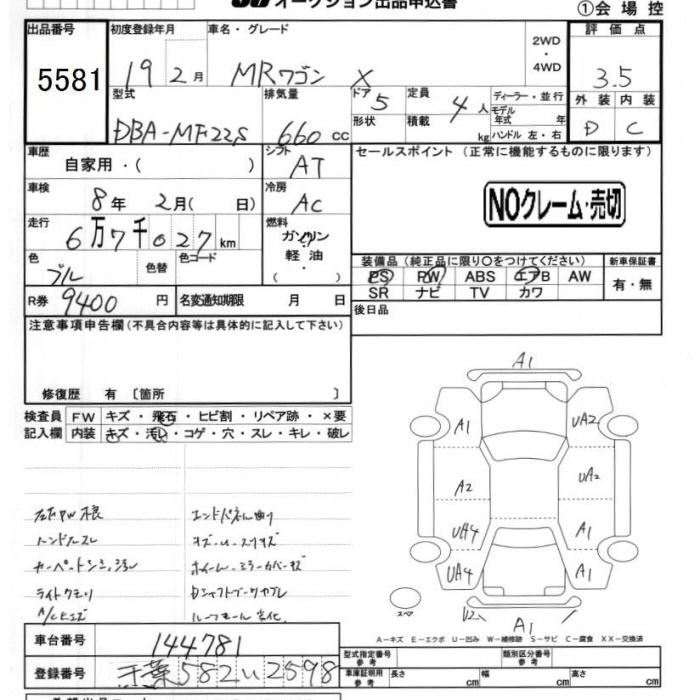 オークション出品申込書
①会場控
出品番号
5581
初度登録年月
19 2月
車名・グレード
MRワゴン X
2WD
・
4WD
評価点
3.5
型式
DBA-MF22S
排気量
660 cc
ドア
5
形状
定員
4人
積載
kg
ディーラー・並行
モデル年式 年
ハンドル 左・右
外装 内装
D C
車歴
自家用・( )
シフト
AT
セールスポイント (正常に機能するものに限ります)
NOクレーム・売切
車検
8年 2月( 日)
冷房
AC
走行
6万7千027km
燃料
ガソリン
軽油・
( )
色
ブルー
色替
色コード
装備品(純正品に限り○をつけてください)
新車保証書
PS PW ABS エアB AW
SR ナビ TV カワ
有・無
R券
9400円
名変通知期限 月 日
後日品
注意事項申告欄(不具合内容等は具体的に記入して下さい)
修復歴 有 〔箇所 〕
検査員記入欄
FW キズ・飛石・ヒビ割・リペア跡・×要
内装 キズ・汚れ・コゲ・穴・スレ・キレ・破レ
ハンドルスレ
ライトクモリ
A/Cヒエズ
エンドパネル曲り
ホイール・ミラーカバーキズ
Dシャフトブーツヤブレ
ルーフモール劣化
A1
A1
UA2
A2
UA2
UA4
A1
UA4
A1
スペア
U2
A1
A−キズ E−エクボ U−凹み W−補修跡 S−サビ C−腐食 XX−交換済
車台番号
144781
登録番号
千葉582い2598
型式指定番号
参考
類別区分番号
参考
車庫証明用
参考
長さ cm
幅 cm
高さ cm